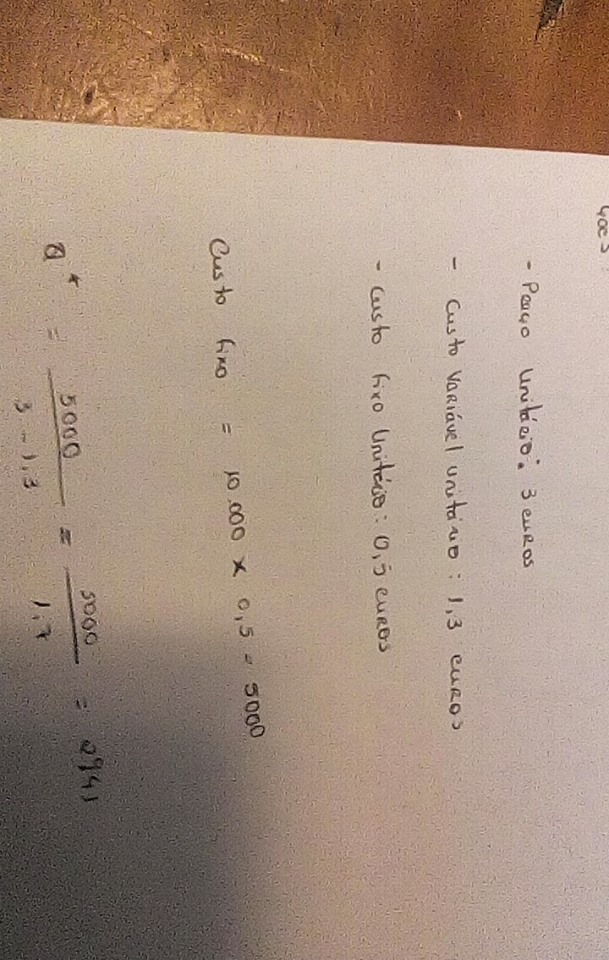 - Preço Unitário: 3 euros
- Custo Variável unitário: 1,3 euros
- Custo fixo Unitário: 0,5 euros
Custo fixo = 10.000 x 0,5 = 5000
Q* = 5000 / 3 - 1,3 = 5000 / 1,7 = 2941